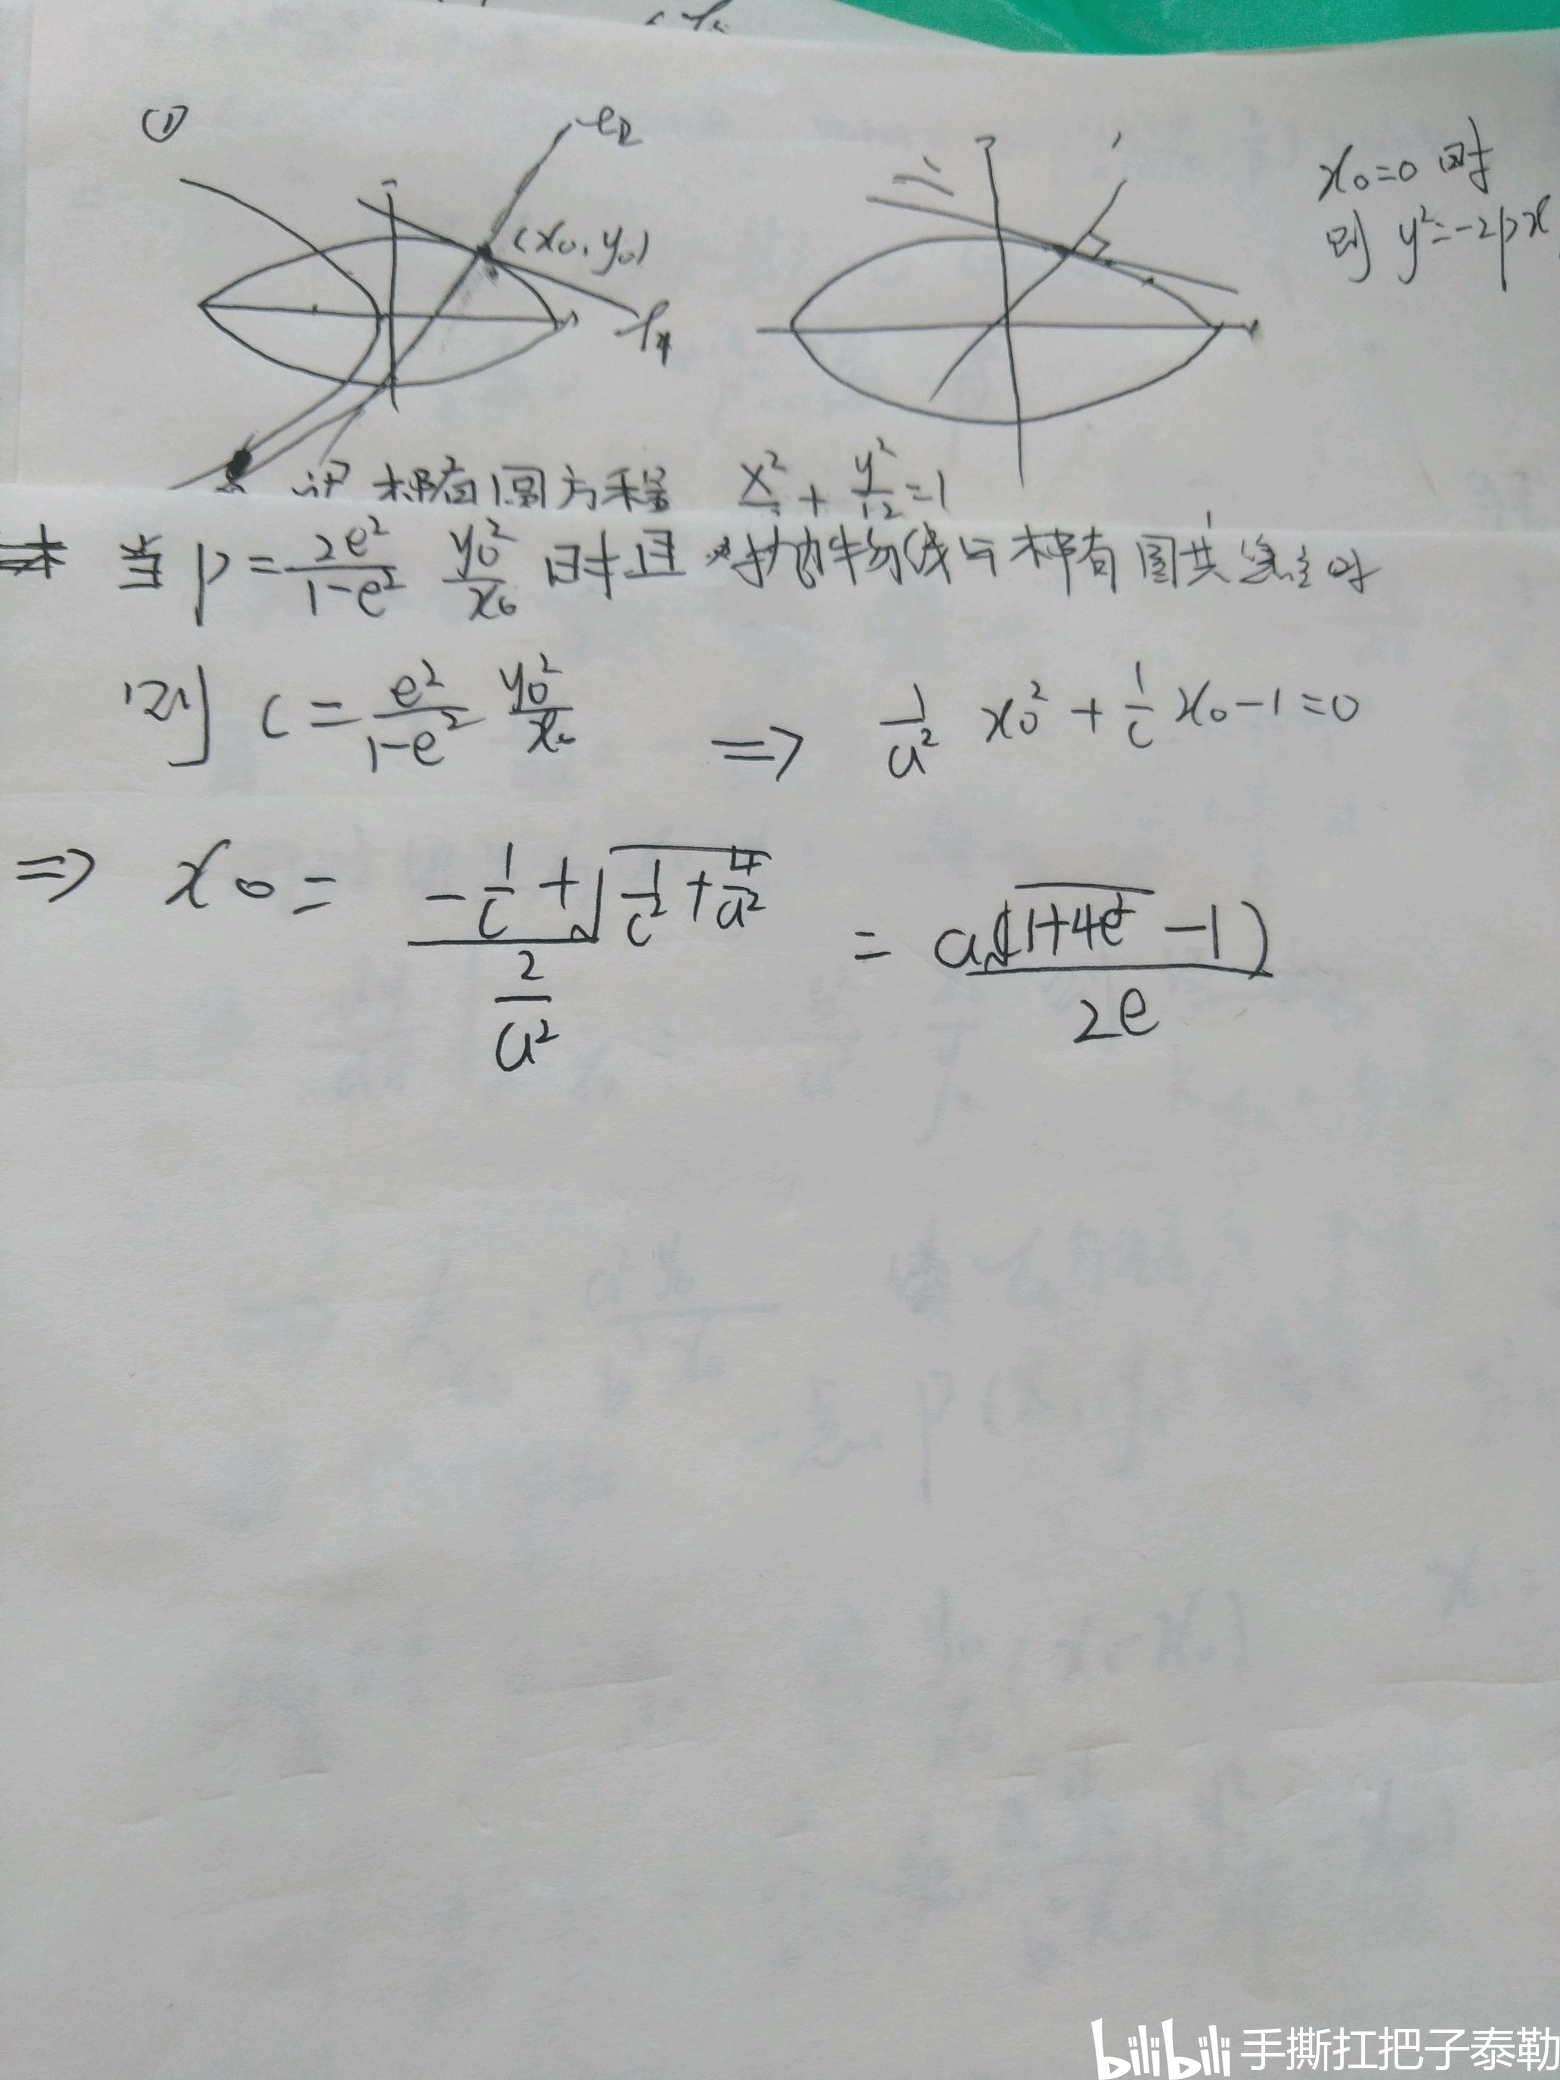 ①
l₂
(x₀, y₀)
l₁
x₀=0 时
则 y²=-2px
椭圆方程 x²/ + y²/ =1
当 p = 2e²/(1-e²) y₀²/x₀ 时且 抛物线与椭圆共焦点时
则 c = e²/(1-e²) y₀²/x₀ ⇒ 1/a² x₀² + 1/c x₀ - 1 = 0
⇒ x₀ = (-1/c + √(1/c² + 4/a²))/(2/a²) = a(√(1+4e²) - 1)/2e
bilibili 手撕扛把子泰勒